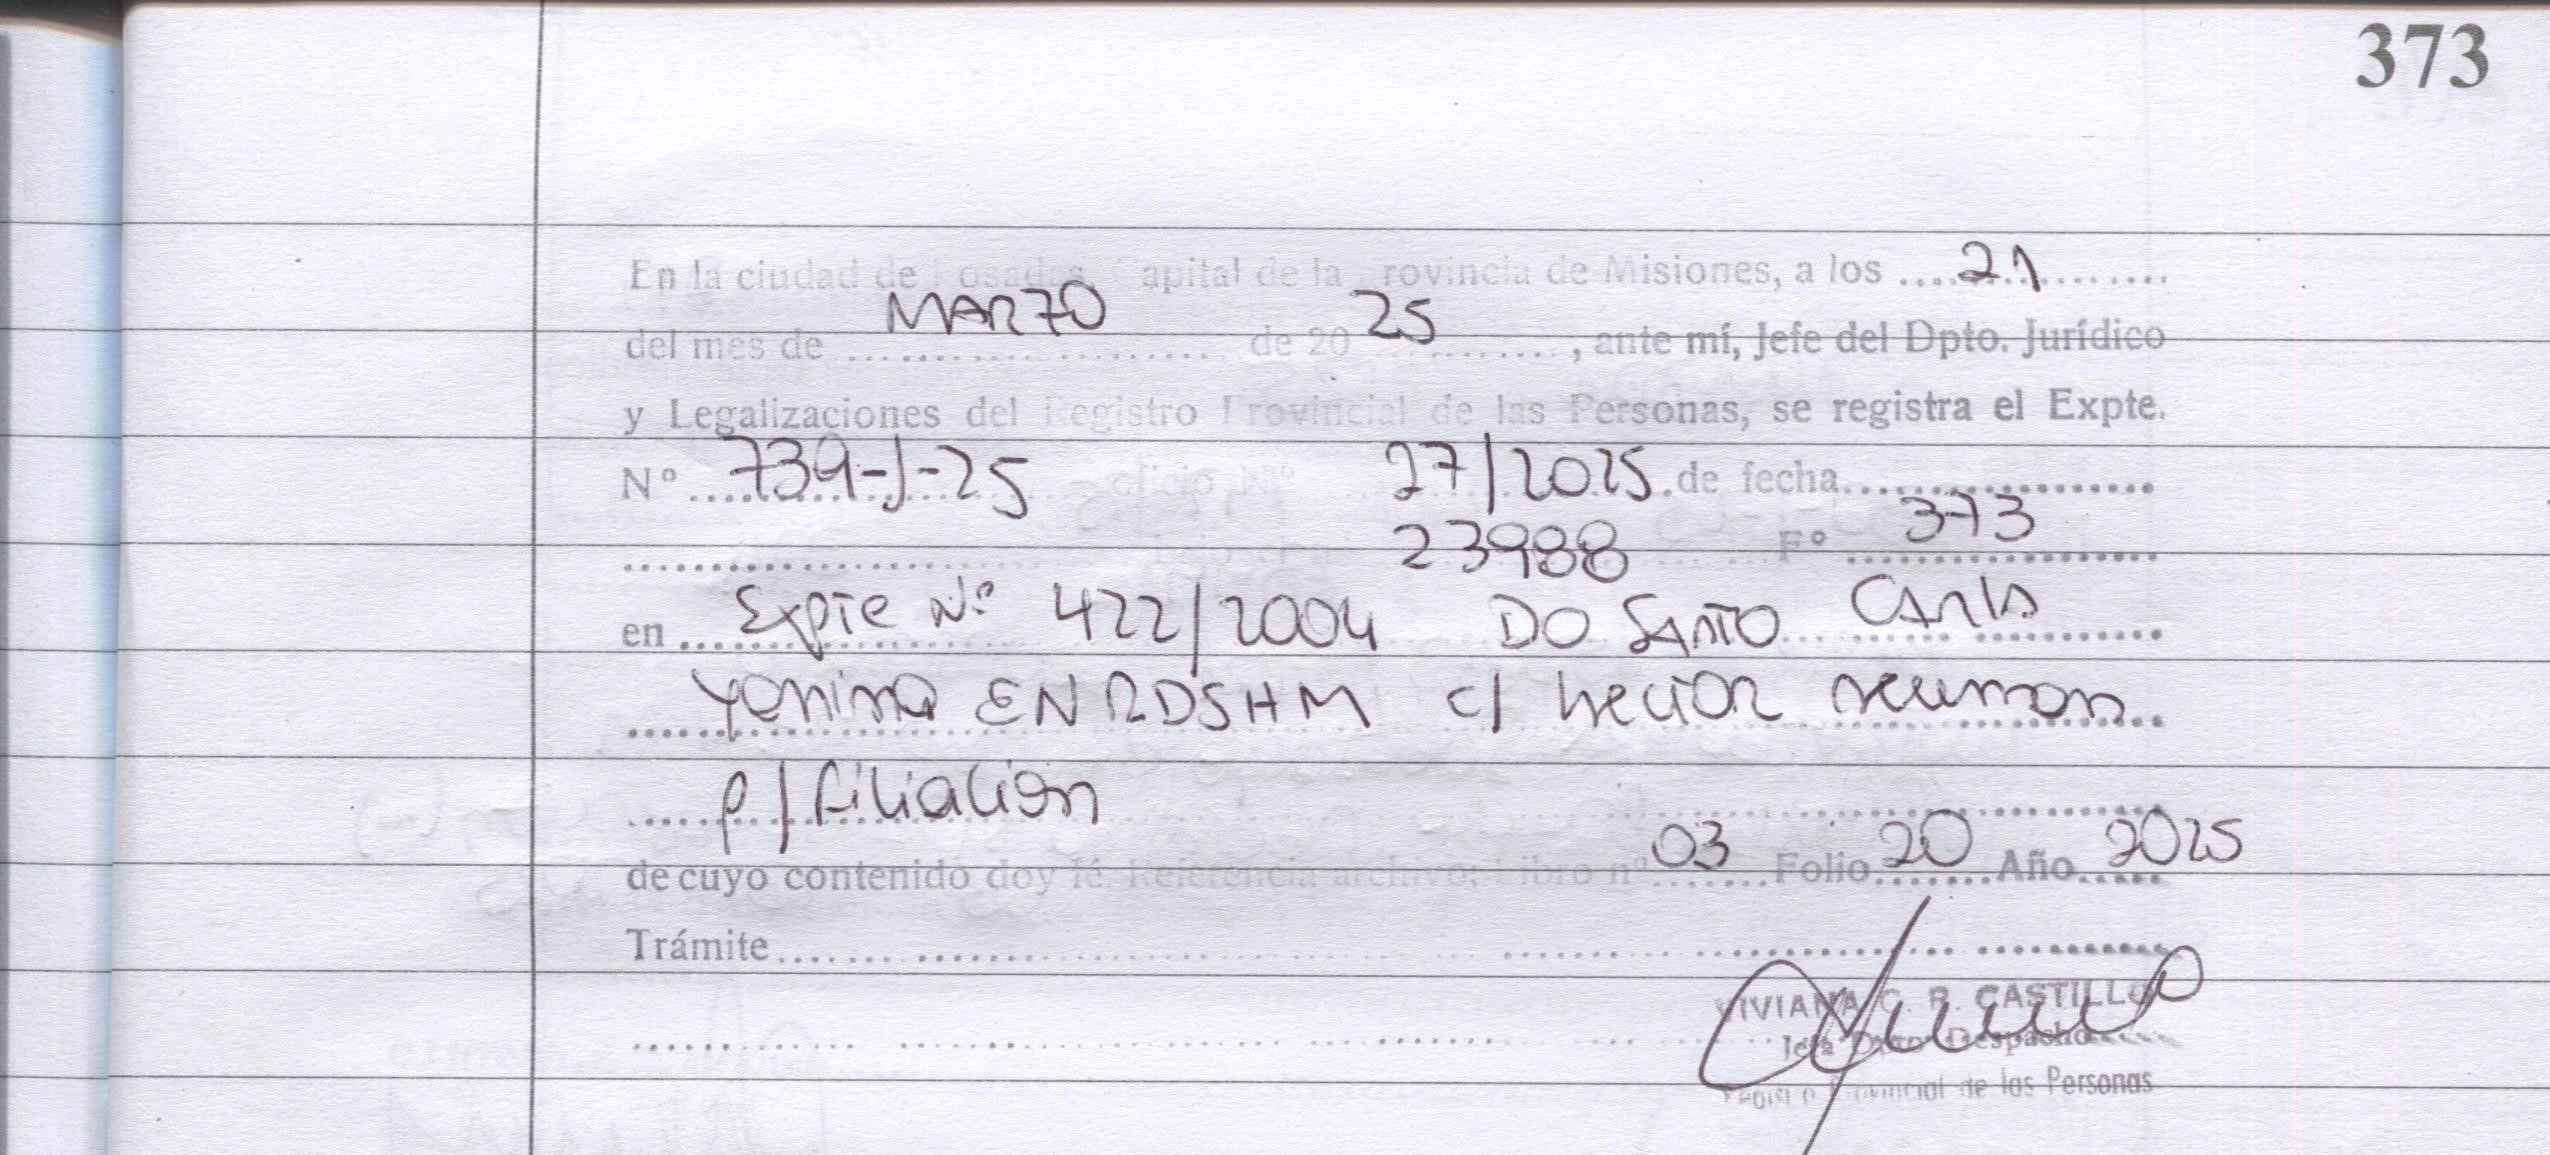 373
En la ciudad de Posadas, Capital de la Provincia de Misiones, a los .... 21 ........
del mes de ..... MARZO ..... de 20 25 ........., ante mí, Jefe del Dpto. Jurídico
y Legalizaciones del Registro Provincial de las Personas, se registra el Expte.
Nº ... 739-J-25 oficio Nº 27/2025 de fecha..................
.......................... 23988 ...... Fº 373
en ... Expte Nº 422/2004 DO SANTO Carla
Yanina ENRDSHM c/ hector
p/ filiación
de cuyo contenido doy fé. Referencia archivo: Libro nº 03 Folio 20 Año 2025
Trámite ........................................
VIVIANA C. R. CASTILLO
Jefa Dpto Despacho
Registro Provincial de las Personas